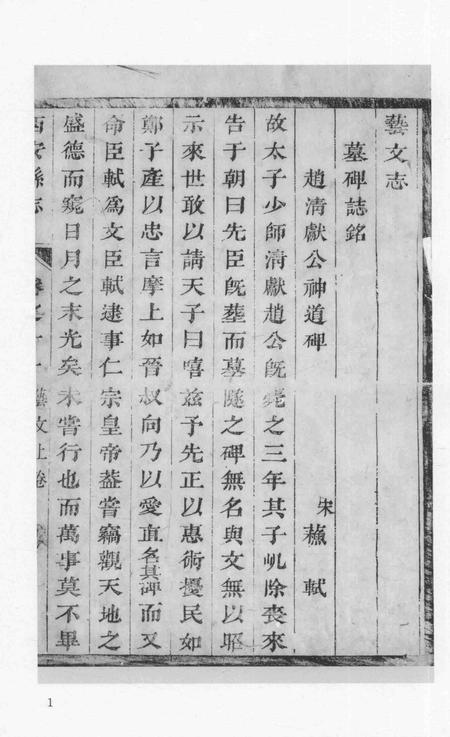 藝文志
墓碑誌銘
趙清獻公神道碑 宋蘇軾
故太子少師清獻趙公既薨之三年其子屼除喪來
告于朝曰先臣既葬而墓隧之碑無名與文無以昭
示來世敢以請天子曰嘻茲予先正以惠術擾民如
鄭子產以忠言摩上如晉叔向乃以愛直名其碑而又
命臣軾爲文臣軾逮事仁宗皇帝葢嘗竊觀天地之
盛德而窺日月之末光矣未嘗行也而萬事莫不畢
西安縣志 卷之十 藝文上卷
1